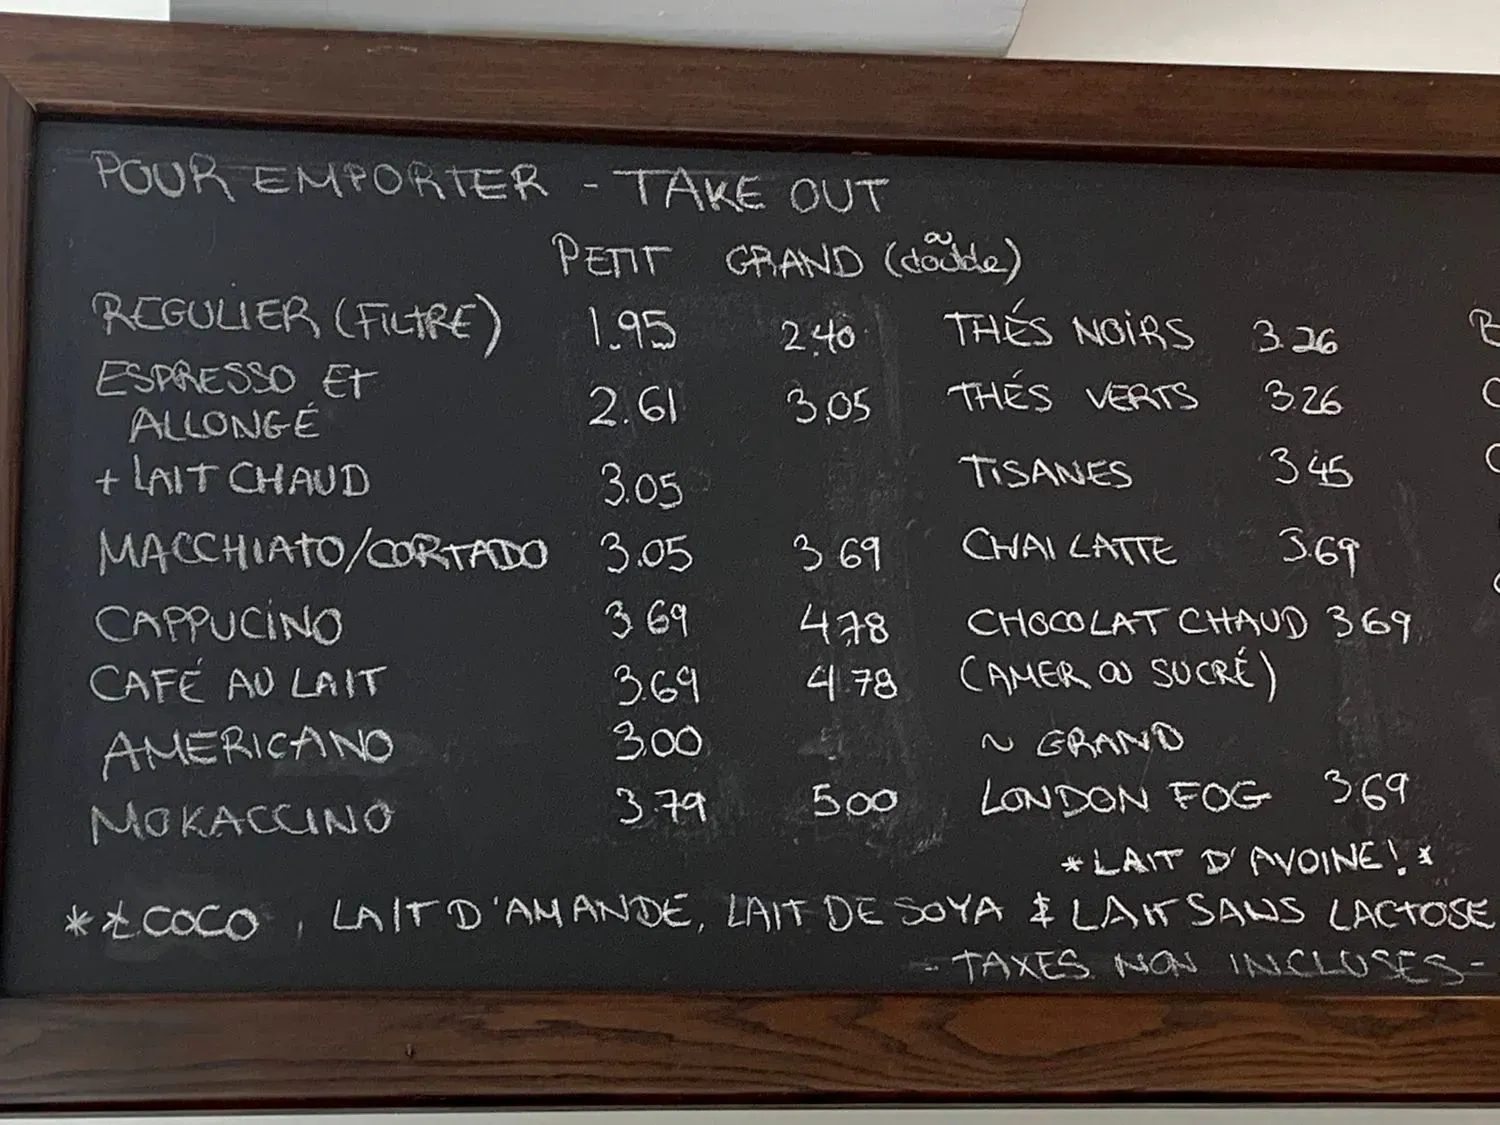 POUR EMPORTER - TAKE OUT
PETIT GRAND (ou double)
REGULIER (FILTRE) 1.95 2.40
ESPRESSO ET
ALLONGÉ 2.61 3.05
+ LAIT CHAUD 3.05
MACCHIATO/CORTADO 3.05 3.69
CAPPUCINO 3.69 4.78
CAFÉ AU LAIT 3.69 4.78
AMERICANO 3.00
MOKACCINO 3.79 5.00
THÉS NOIRS 3.26
THÉS VERTS 3.26
TISANES 3.45
CHAI LATTE 3.69
CHOCOLAT CHAUD 3.69
(AMER OU SUCRÉ)
~ GRAND
LONDON FOG 3.69
*LAIT D'AVOINE!*
** COCO, LAIT D'AMANDE, LAIT DE SOYA & LAIT SANS LACTOSE
- TAXES NON INCLUSES -